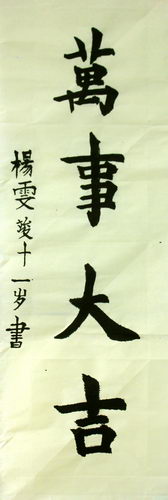 萬事大吉
楊雯竣十一岁書